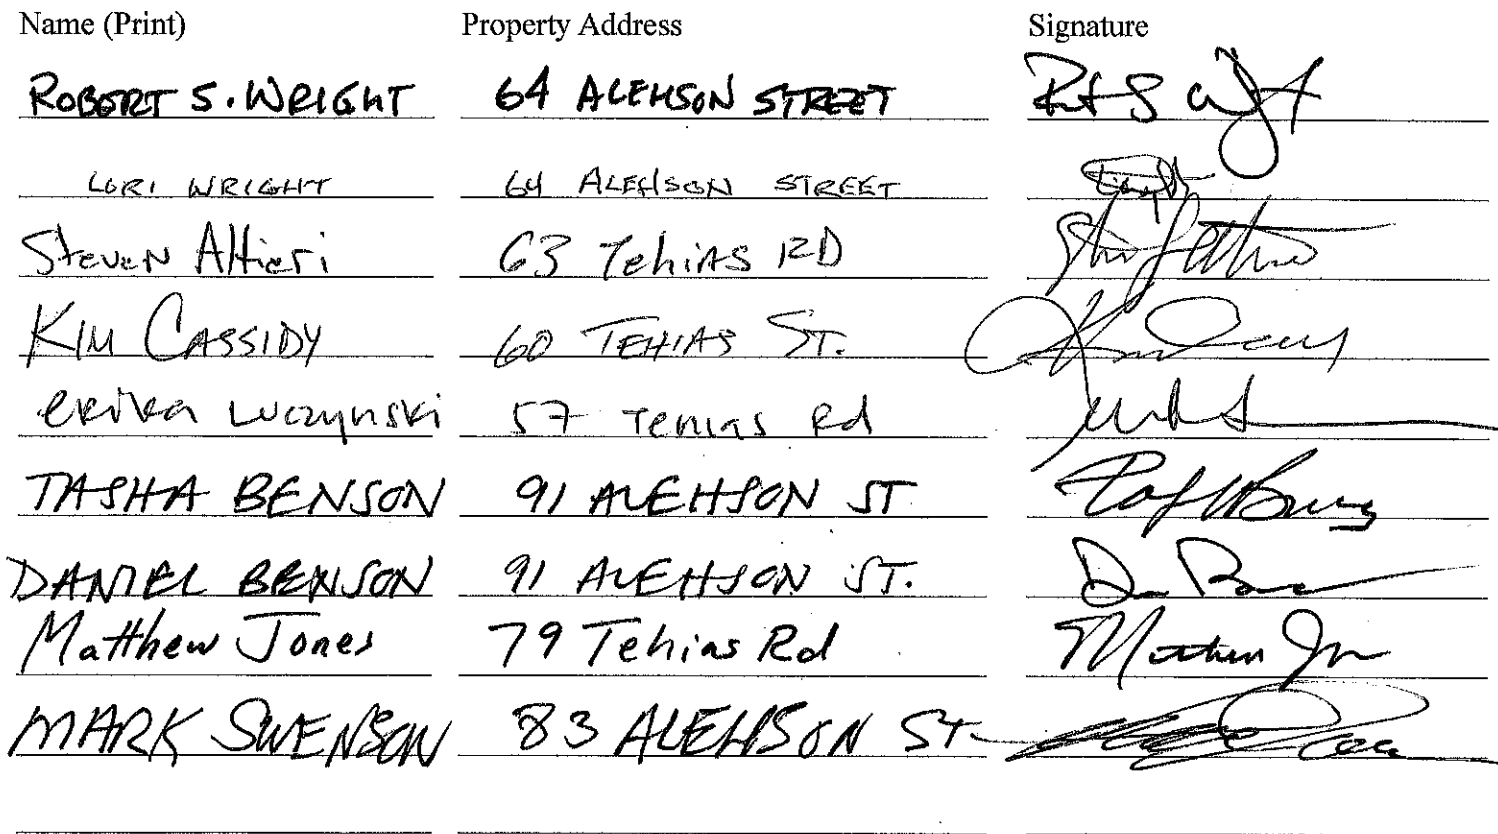 Name (Print) Property Address Signature
ROBERT S. WRIGHT 64 ALEHSON STREET
LORI WRIGHT 64 ALEHSON STREET
Steven Altieri 63 Tehias RD
KIM CASSIDY 60 TEHIAS ST.
erika Luczynski 57 Tehias Rd
TASHA BENSON 91 ALEHSON ST
DANIEL BENSON 91 ALEHSON ST.
Matthew Jones 79 Tehias Rd Matthew Jon
MARK SWENSON 83 ALEHSON ST.